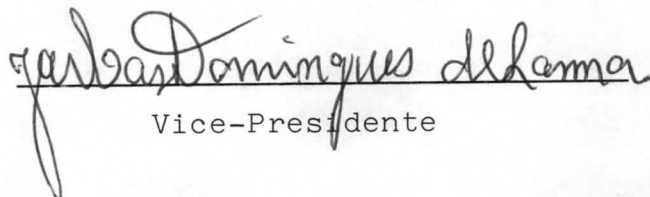 Jarbas Domingues de Lanna
Vice-Presidente